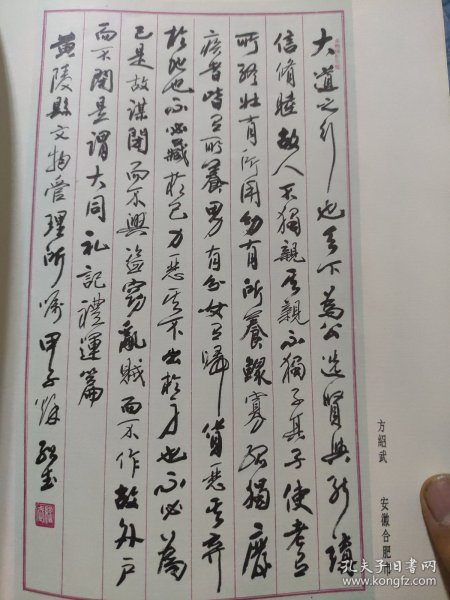 大道之行也天下為公選賢與能講
信脩睦故人不獨親其親不獨子其子使老有
所終壯有所用幼有所養鰥寡孤獨廢
疾者皆有所養男有分女有歸貨惡其棄
於地也不必藏於己力惡其不出於身也不必為
己是故謀閉而不興盜竊亂賊而不作故外戶
而不閉是謂大同礼記禮運篇
黄陵縣文物管理所囑甲子 紹武
方紹武 安徽合肥
孔夫子旧书网
www.kongfz.com